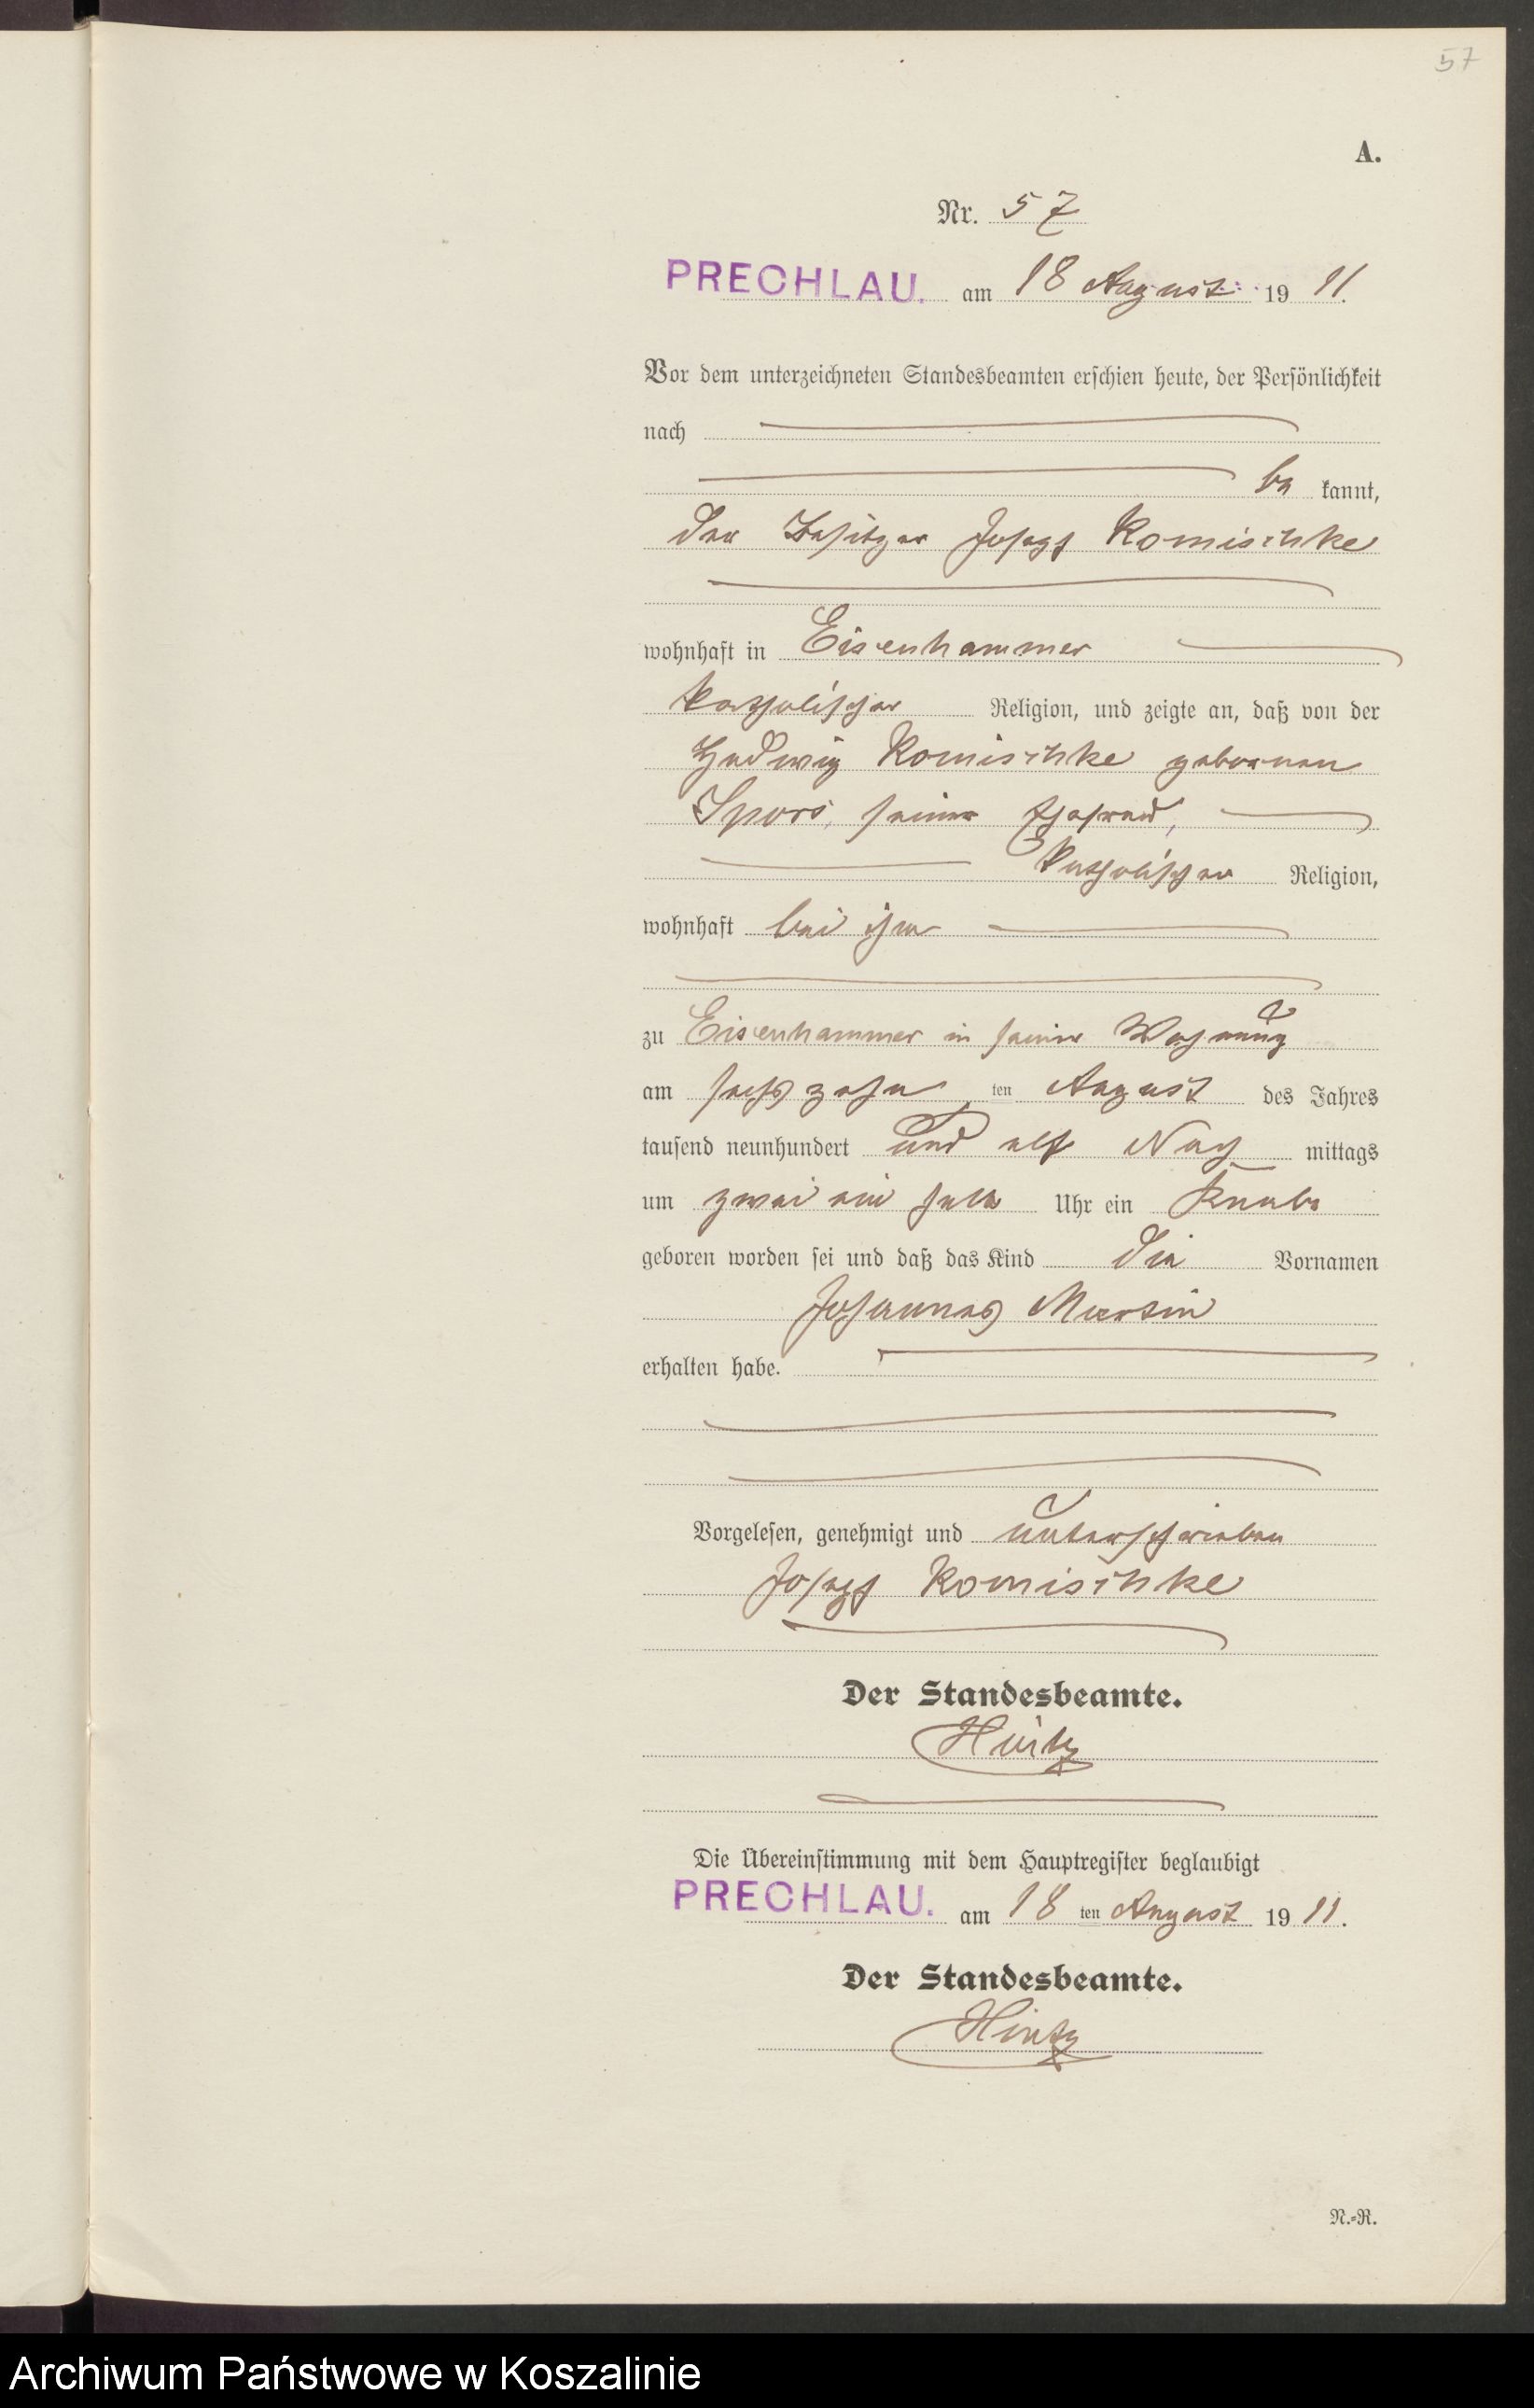 57
A.
Nr. 57
PRECHLAU. am 18 August 19 11.
Vor dem unterzeichneten Standesbeamten erschien heute, der Persönlichkeit
nach
be kannt,
der Besitzer Josef Komischke
wohnhaft in Eisenhammer
katholischer Religion, und zeigte an, daß von der
Hedwig Komischke geborenen
Spors, seiner Ehefrau,
katholischer Religion,
wohnhaft bei ihm
zu Eisenhammer in seiner Wohnung
am sechszehn ten August des Jahres
tausend neunhundert und elf Nach mittags
um zwei ein halb Uhr ein Knabe
geboren worden sei und daß das Kind die Vornamen
Johannes Martin
erhalten habe.
Vorgelesen, genehmigt und unterschrieben
Josef Komischke
Der Standesbeamte.
Hintz
Die Übereinstimmung mit dem Hauptregister beglaubigt
PRECHLAU. am 18 ten August 19 11.
Der Standesbeamte.
Hintz
N.=R.
Archiwum Państwowe w Koszalinie